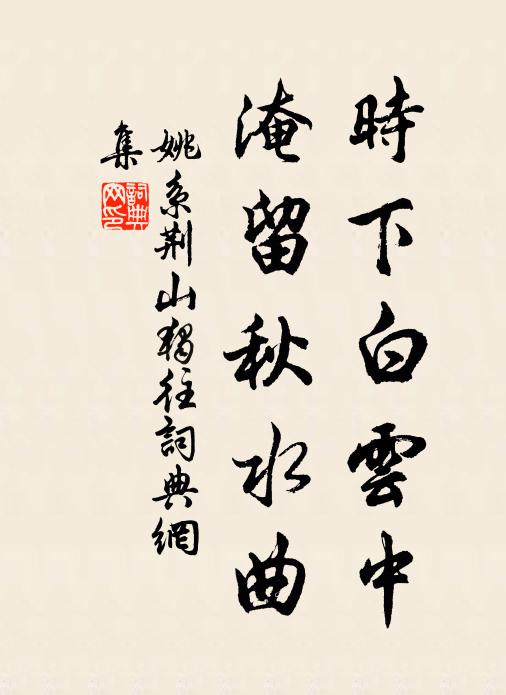 時下白雲中
淹留秋水曲
姚系荆山獨往詞典網
集
詞典网印